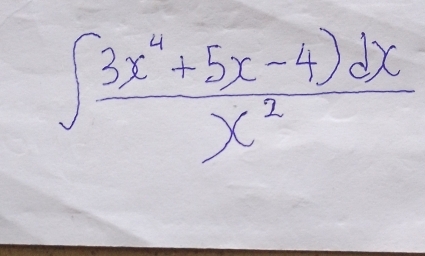 ∫ 3x⁴ + 5x - 4) dx
x²